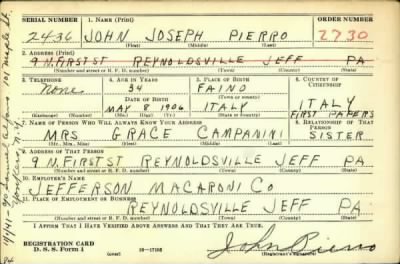 SERIAL NUMBER 1. NAME (Print) ORDER NUMBER
2436 JOHN JOSEPH PIERRO 2730
(First) (Middle) (Last)
2. ADDRESS (Print)
9 N. FIRST ST REYNOLDSVILLE JEFF PA
(Number and street or R. F. D. number) (Town) (County) (State)
3. TELEPHONE 4. AGE IN YEARS 5. PLACE OF BIRTH 6. COUNTRY OF CITIZENSHIP
None 34 FAINO
(Town or county)
DATE OF BIRTH
MAY 8 1906 ITALY ITALY
(Exchange) (Number) (Mo.) (Day) (Yr.) (State or country) FIRST PAPERS
7. NAME OF PERSON WHO WILL ALWAYS KNOW YOUR ADDRESS 8. RELATIONSHIP OF THAT PERSON
MRS GRACE CAMPANINI SISTER
(Mr., Mrs., Miss) (First) (Middle) (Last)
9. ADDRESS OF THAT PERSON
9 N. FIRST ST REYNOLDSVILLE JEFF PA
(Number and street or R. F. D. number) (Town) (County) (State)
10. EMPLOYER'S NAME
JEFFERSON MACARONI CO
11. PLACE OF EMPLOYMENT OR BUSINESS
REYNOLDSVILLE JEFF PA
(Number and street or R. F. D. number) (Town) (County) (State)
I AFFIRM THAT I HAVE VERIFIED ABOVE ANSWERS AND THAT THEY ARE TRUE.
REGISTRATION CARD
D. S. S. Form 1 (over) 16—17105 John Pierro
(Registrant's signature)
101 Maple St.
Yonkers N.Y.